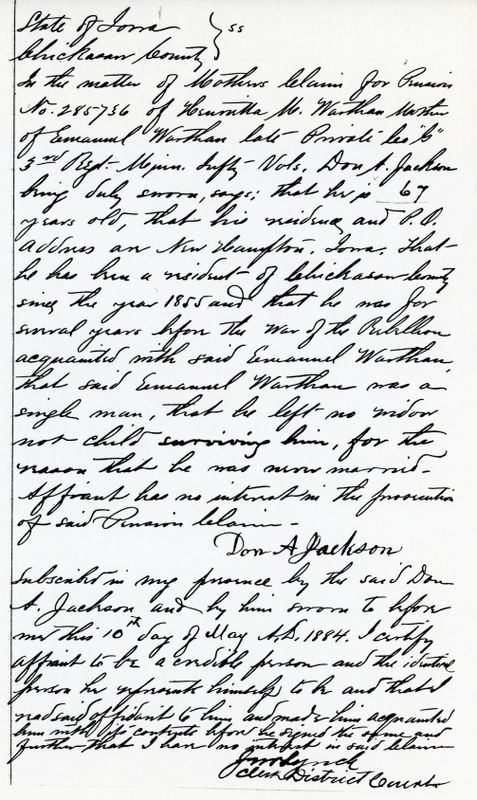 State of Iowa } ss
Chickasaw County
In the matter of Mothers Claim for Pension
No. 285736 of Henrietta M. Warthan Mother
of Emanuel Warthan late Private Co "B"
3rd Regt. Minn. Infty Vols. Don A. Jackson
being duly sworn, says; that he is 67
years old, that his residence and P.O.
Address are New Hampton, Iowa. That
he has been a resident of Chickasaw County
since the year 1855 and that he was for
several years before the War of the Rebellion
acquainted with said Emanuel Warthan,
that said Emanuel Warthan was a
single man, that he left no widow
not child surviving him, for the
reason that he was never married.
Affiant has no interest in the prosecution
of said Pension Claim -
Don A Jackson
Subscribed in my presence by the said Don
A. Jackson and by him sworn to before
me this 10th day of May A.D. 1884. I certify
affiant to be a credible person and the identical
person he represents himself to be and that I
read said affidavit to him and made him acquainted
him with its contents before he signed the same and
further that I have no interest in said Claim
Clerk District Court